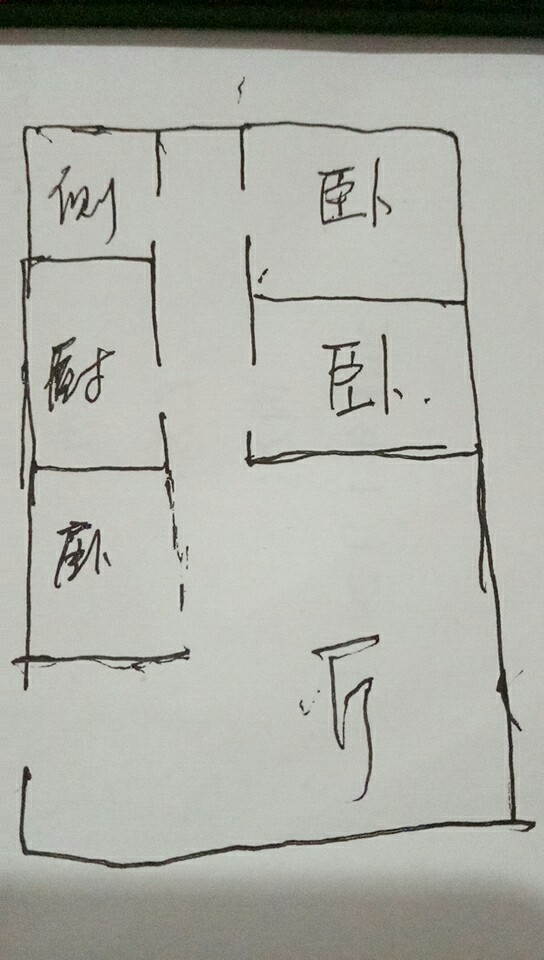 侧
卧
厨
卧
卧
厅